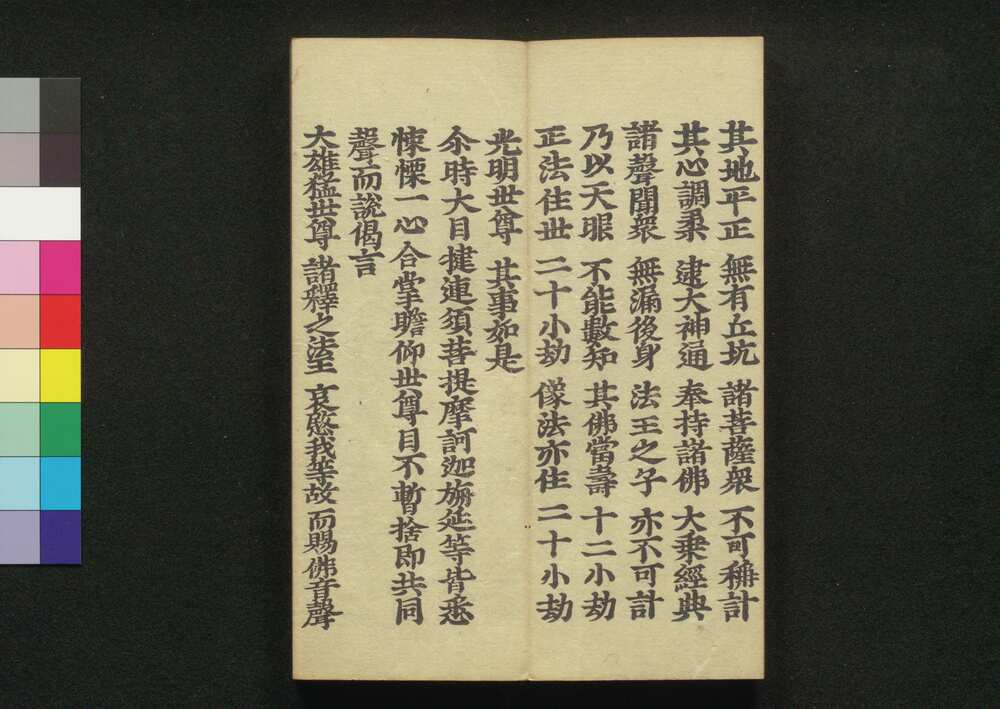 其地平正 無有丘坑 諸菩薩衆 不可稱計
其心調柔 逮大神通 奉持諸佛 大乗經典
諸聲聞衆 無漏後身 法王之子 亦不可計
乃以天眼 不能數知 其佛當壽 十二小劫
正法住世 二十小劫 像法亦住 二十小劫
光明世尊 其事如是
尒時大目揵連須菩提摩訶迦旃延等皆悉
悚慄一心合掌瞻仰世尊目不暫捨即共同
聲而説偈言
大雄猛世尊 諸釋之法王 哀愍我等故 而賜佛音聲